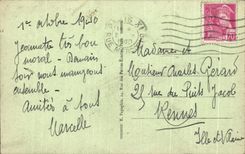 1er octobre 1940
Jeannette très bon
moral - Demain
soir nous mangeons
ensemble -
Amitiés à tous
Marcelle
Madame et
Monsieur Charles Gérard
25 rue du Puits Jacob
Rennes
Ille et Vilaine